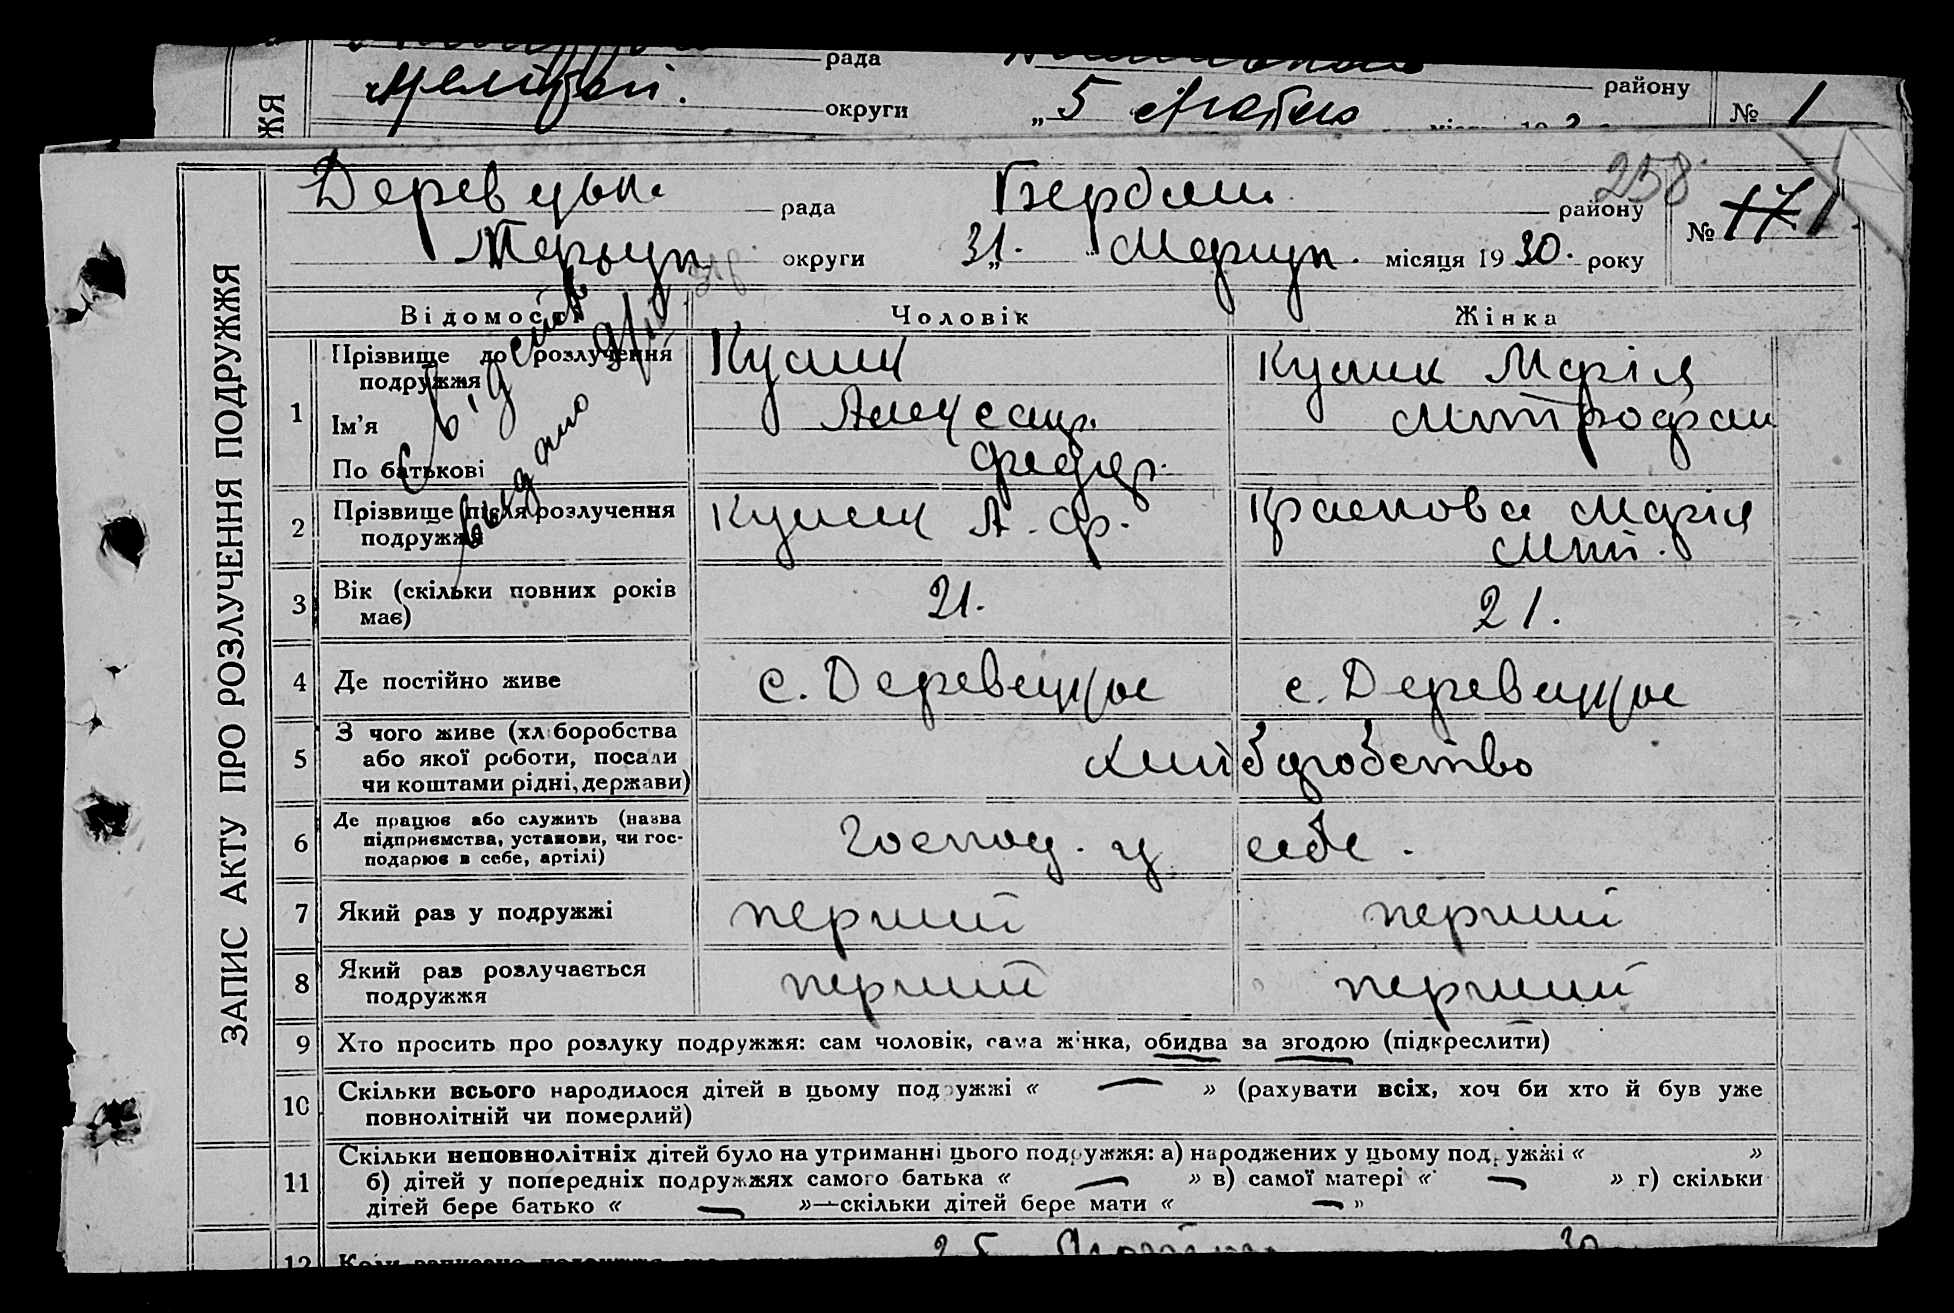 рада району
округи „ 5 № 1
Деревцьк. рада Бердян. району 258 № 17 1
округи 31. Марця. місяця 1930. року
ЗАПИС АКТУ ПРО РОЗЛУЧЕННЯ ПОДРУЖЖЯ
Відомості Чоловік Жінка
1 Прізвище до розлучення Кулик Кулик Марія
подружжя
Ім’я Алексанр. Митрофан
По батькові Федор.
2 Прізвище після розлучення Кулик А. Ф. Краснова Марія
подружжя Мит.
3 Вік (скільки повних років 21. 21.
має)
4 Де постійно живе с. Деревецкое с. Деревецкое
5 З чого живе (хліборобства
або якої роботи, посади хлиборобство
чи коштами рідні, держави)
6 Де працює або служить (назва
підприємства, установи, чи гос- Господ. у себе.
подарює в себе, артілі)
7 Який раз у подружжі перший перший
8 Який раз розлучається перший перший
подружжя
9 Хто просить про розлуку подружжя: сам чоловік, сама жінка, обидва за згодою (підкреслити)
10 Скільки всього народилося дітей в цьому подружжі « — » (рахувати всіх, хоч би хто й був уже
повнолітній чи померлий)
11 Скільки неповнолітніх дітей було на утриманні цього подружжя: а) народжених у цьому подружжі « »
б) дітей у попередніх подружжях самого батька « — » в) самої матері « — » г) скільки
дітей бере батько « — »—скільки дітей бере мати « — »
12 25 30
свідоцтв
выдано